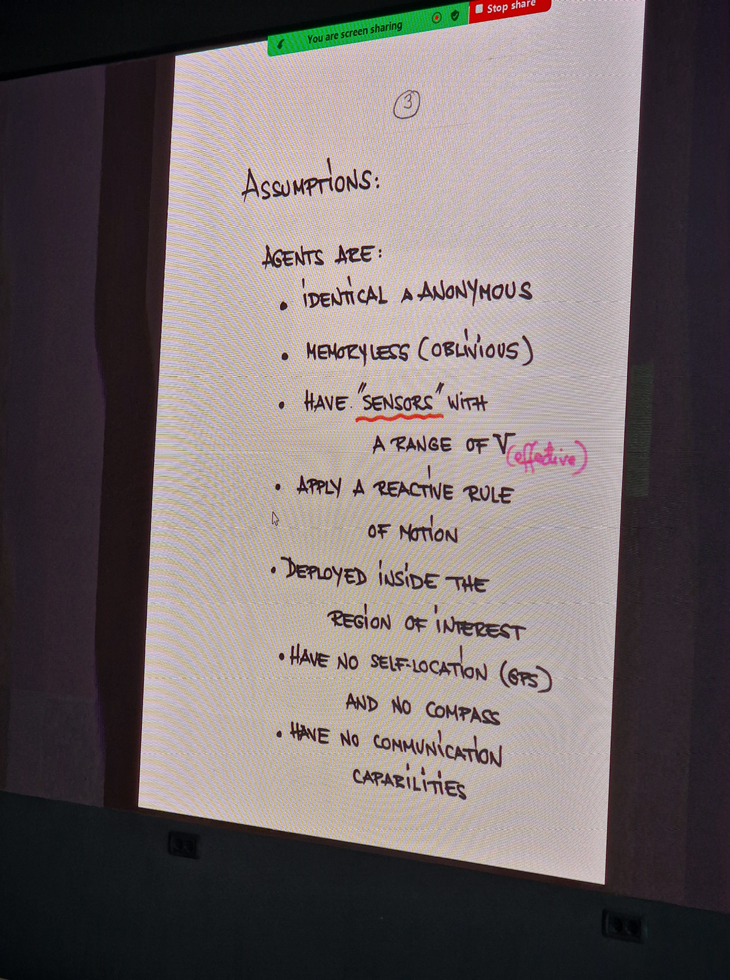 You are screen sharing
Stop share
3
ASSUMPTIONS:
AGENTS ARE:
• IDENTICAL & ANONYMOUS
• MEMORYLESS (OBLIVIOUS)
• HAVE "SENSORS" WITH
A RANGE OF V (effective)
• APPLY A REACTIVE RULE
OF MOTION
• DEPLOYED INSIDE THE
REGION OF INTEREST
• HAVE NO SELF-LOCATION (GPS)
AND NO COMPASS
• HAVE NO COMMUNICATION
CAPABILITIES